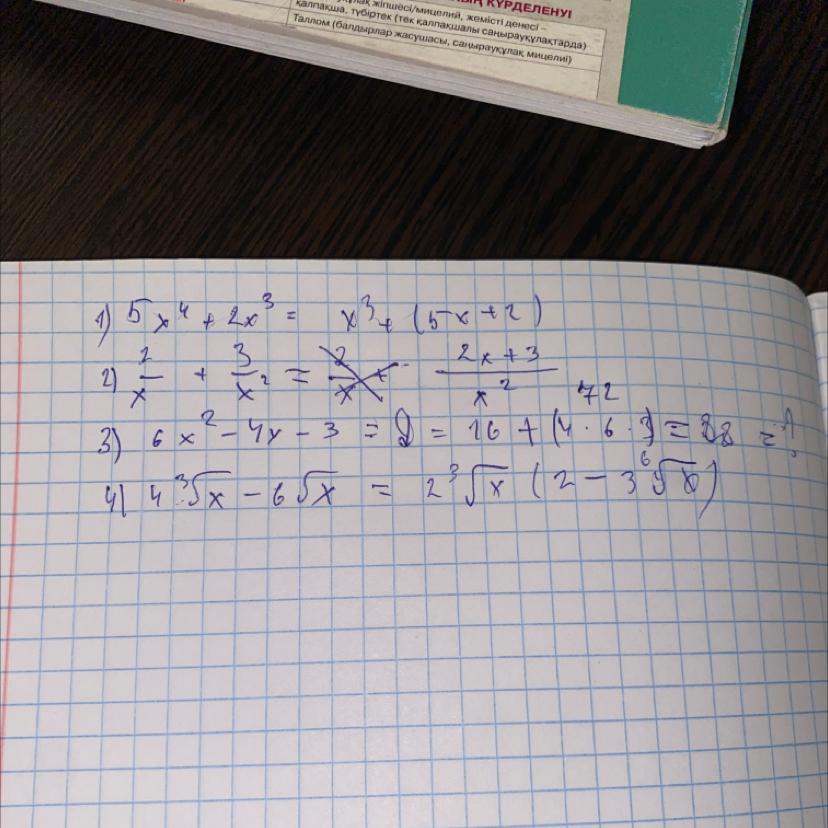 ҢЫҢ КҮРДЕЛЕНУІ
жіпшесі/мицелий, жемісті денесі –
қалпақша, түбіртек (тек қалпақшалы саңырауқұлақтарда)
Таллом (балдырлар жасушасы, саңырауқұлақ мицелиі)
1) 5x⁴ + 2x³ = x³ + (5x + 2)
2) 2/x + 3/x² = (2x + 3)/x²
72
3) 6x² - 4x - 3 = D = 16 + (4 · 6 · 3) = 88 = ?
4) 4∛x - 6√x = 2∛x (2 - 3⁶√x)